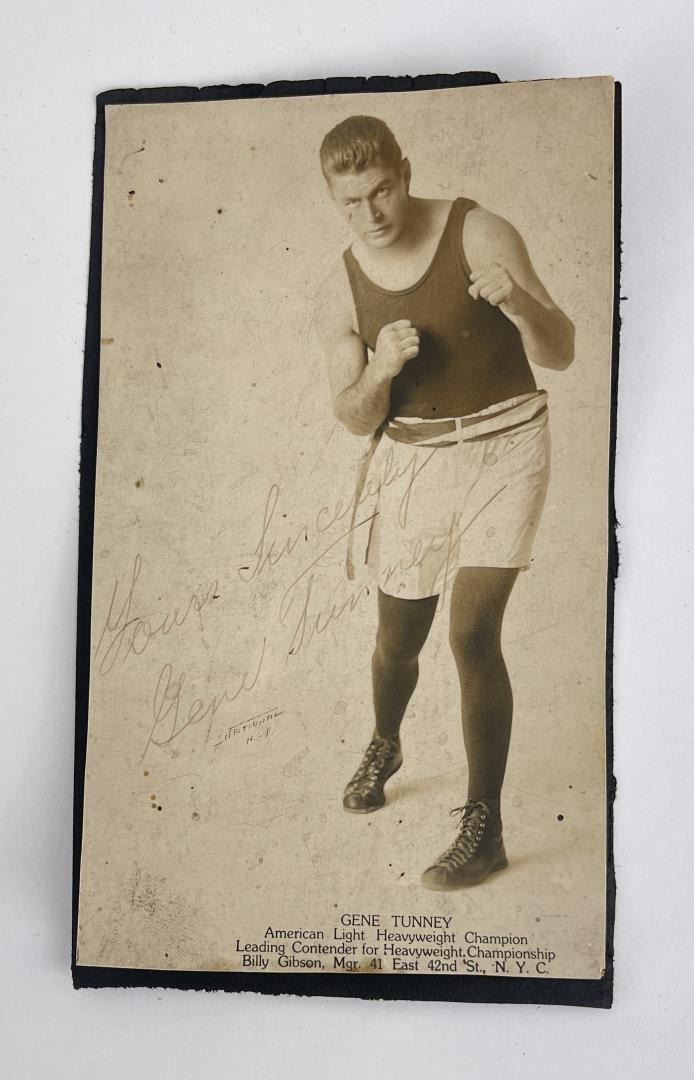 Yours Sincerely
Gene Tunney
NATIONAL
N-Y
GENE TUNNEY
American Light Heavyweight Champion
Leading Contender for Heavyweight Championship
Billy Gibson, Mgr. 41 East 42nd St., N. Y. C.